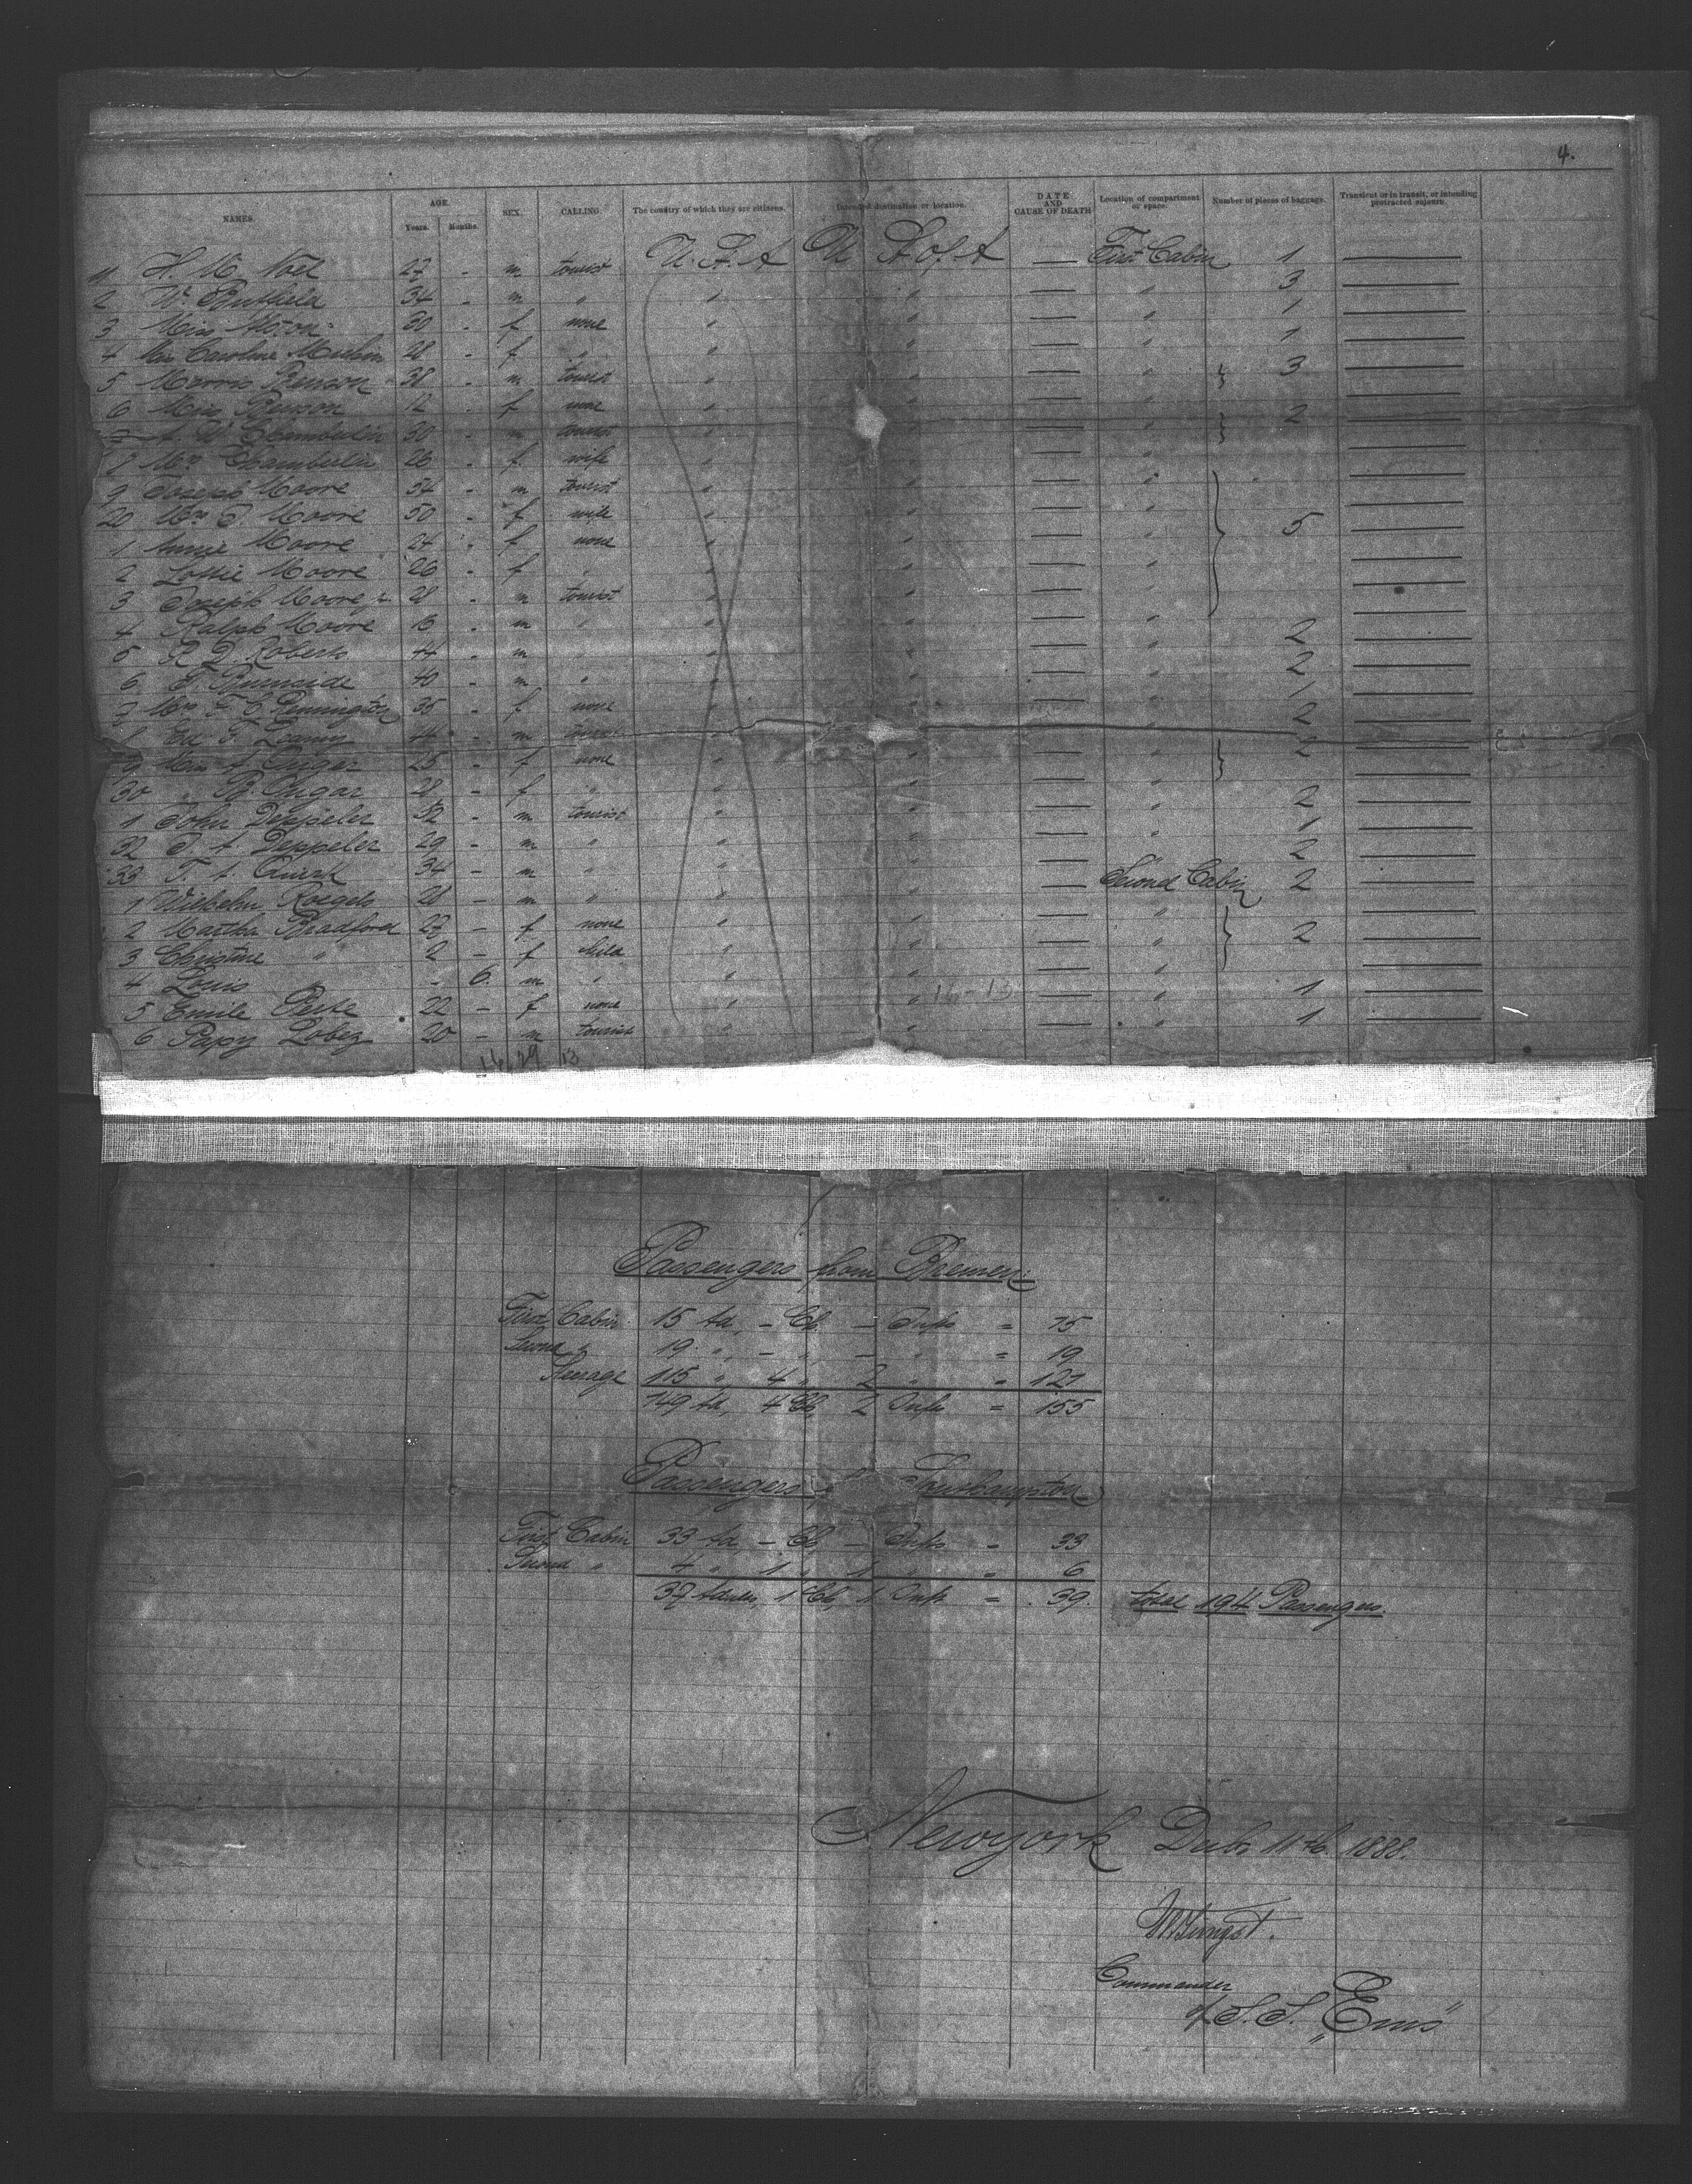 4.
NAMES. AGE. Years. Months. SEX. CALLING. The country of which they are citizens. Intended destination or location. DATE AND CAUSE OF DEATH Location of compartment or space. Number of pieces of baggage. Transient or in transit, or intending protracted sojourn.
11 H. M. Noel 27 - m tourist U. S. A U. S. of A — First Cabin 1 —
2 W. 34 - m " " " — " 3 —
3 Miss 30 - f none " " — " 1 —
4 Miss Caroline 28 - f " " " — " 1 —
5 Morris Benson 38 - m tourist " " — " } 3 —
6 Miss Benson 12 - f none " " — "
7 A. W. Chamberlin 30 - m tourist " " — " } 2 —
8 Mrs Chamberlin 26 - f wife " " — "
9 Joseph Moore 54 - m tourist " " — "
20 Mrs J. Moore 50 - f wife " " — "
1 Annie Moore 24 - f none " " — " } 5 —
2 Lottie Moore 26 - f " " " — "
3 Joseph Moore jr. 28 - m tourist " " — "
4 Ralph Moore 16 - m " " " — "
5 R. D. Roberts 44 - m " " " — " 2 —
6 T. Burnside 40 - m " " " — " 2 —
7 Mrs F. C. Pennington 35 - f none " " — " 1 —
8 T. 44 - m tourist " " — " 2 —
9 Miss A. 25 - f none " " — " } 2 —
30 " B. 28 - f " " " — "
1 John Deppeler 52 - m tourist " " — " 2 —
32 J. A. Deppeler 29 - m " " " — " 1 —
33 T. A. Quirk 34 - m " " " — " 2 —
1 Wilhelm Roegels 28 - m " " " — Second Cabin 2 —
2 Martha Bradford 27 - f none " " — " } 2 —
3 Christine " 2 - f child " " — "
4 Louis - 6 m " " " — "
5 Emile 22 - f none " " — " 1 —
6 Papy Lobez 20 - m tourist " " — " 1 —
Passengers from Bremen:
First Cabin 15 Ad, - Ch. - Infs = 15
Second " 19 ", - ", - " = 19
Steerage 115 " 4 " 2 " = 121
149 Ad, 4 Ch, 2 Infs = 155
Passengers Southampton
First Cabin 33 Ad, - Ch - Infs = 33
Second " 4 " 1 " 1 " = 6
37 Adults, 1 Ch, 1 Inft = 39. total 194 Passengers.
Newyork Decbr 11th 1888.
Commander
of S. S. „Ems"